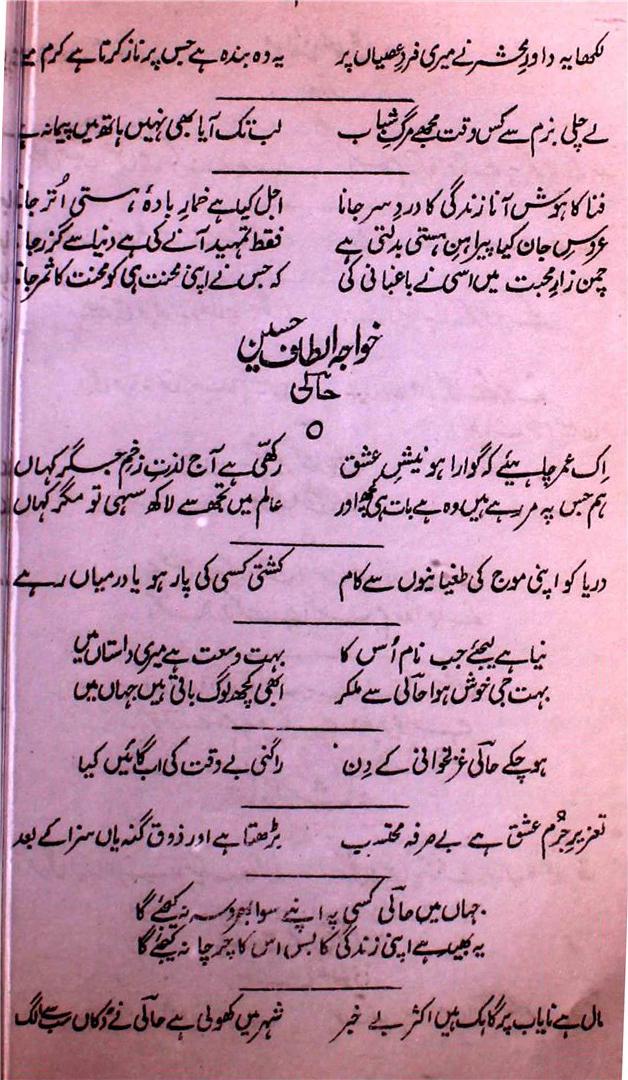 لکھا یہ داورِ محشر نے میری فردِ عصیاں پر یہ وہ بندہ ہے جس پر ناز کرتا ہے کرم
لے چلی بزم سے کس وقت مجھے مرگِ شباب لب تک آیا بھی نہیں ہاتھ میں پیمانہ ہے
فنا کا ہوش آنا زندگی کا دردِ سر جانا اجل کیا ہے خمارِ بادۂ ہستی اُتر جانا
عروسِ جان کیا پیراہنِ ہستی بدلتی ہے فقط تمہید آنے کی ہے دنیا سے گزر جانا
چمن زارِ محبت میں اسی نے باغبانی کی کہ جس نے اپنی محنت ہی کو محنت کا ثمر جانا
خواجہ الطاف حسین
حالی
اِک عمر چاہیئے کہ گوارا ہو نیشِ عشق رکھی ہے آج لذتِ زخمِ جگر کہاں
ہم جس پہ مر رہے ہیں وہ ہے بات ہی کچھ اور عالم میں تجھ سے لاکھ سہی تو مگر کہاں
دریا کو اپنی موج کی طغیانیوں سے کام کشتی کسی کی پار ہو یا درمیاں رہے
نیا ہے لیجئے جب نام اُس کا بہت وسعت ہے میری داستاں میں
بہت جی خوش ہوا حالی سے ملکر ابھی کچھ لوگ باقی ہیں جہاں میں
ہو چکے حالی غزلخوانی کے دِن راگنی بے وقت کی اب گائیں کیا
تعزیرِ جُرمِ عشق ہے بے صرفہ محتسب بڑھتا ہے اور ذوقِ گنہ یاں سزا کے بعد
جہاں میں حالی کسی پہ اپنے سوا بھروسہ نہ کیجئے گا
یہ بھید ہے اپنی زندگی کا بس اس کا چرچا نہ کیجئے گا
مال ہے نایاب پر گاہک ہیں اکثر بے خبر شہر میں کھولی ہے حالی نے دُکاں سب سے الگ